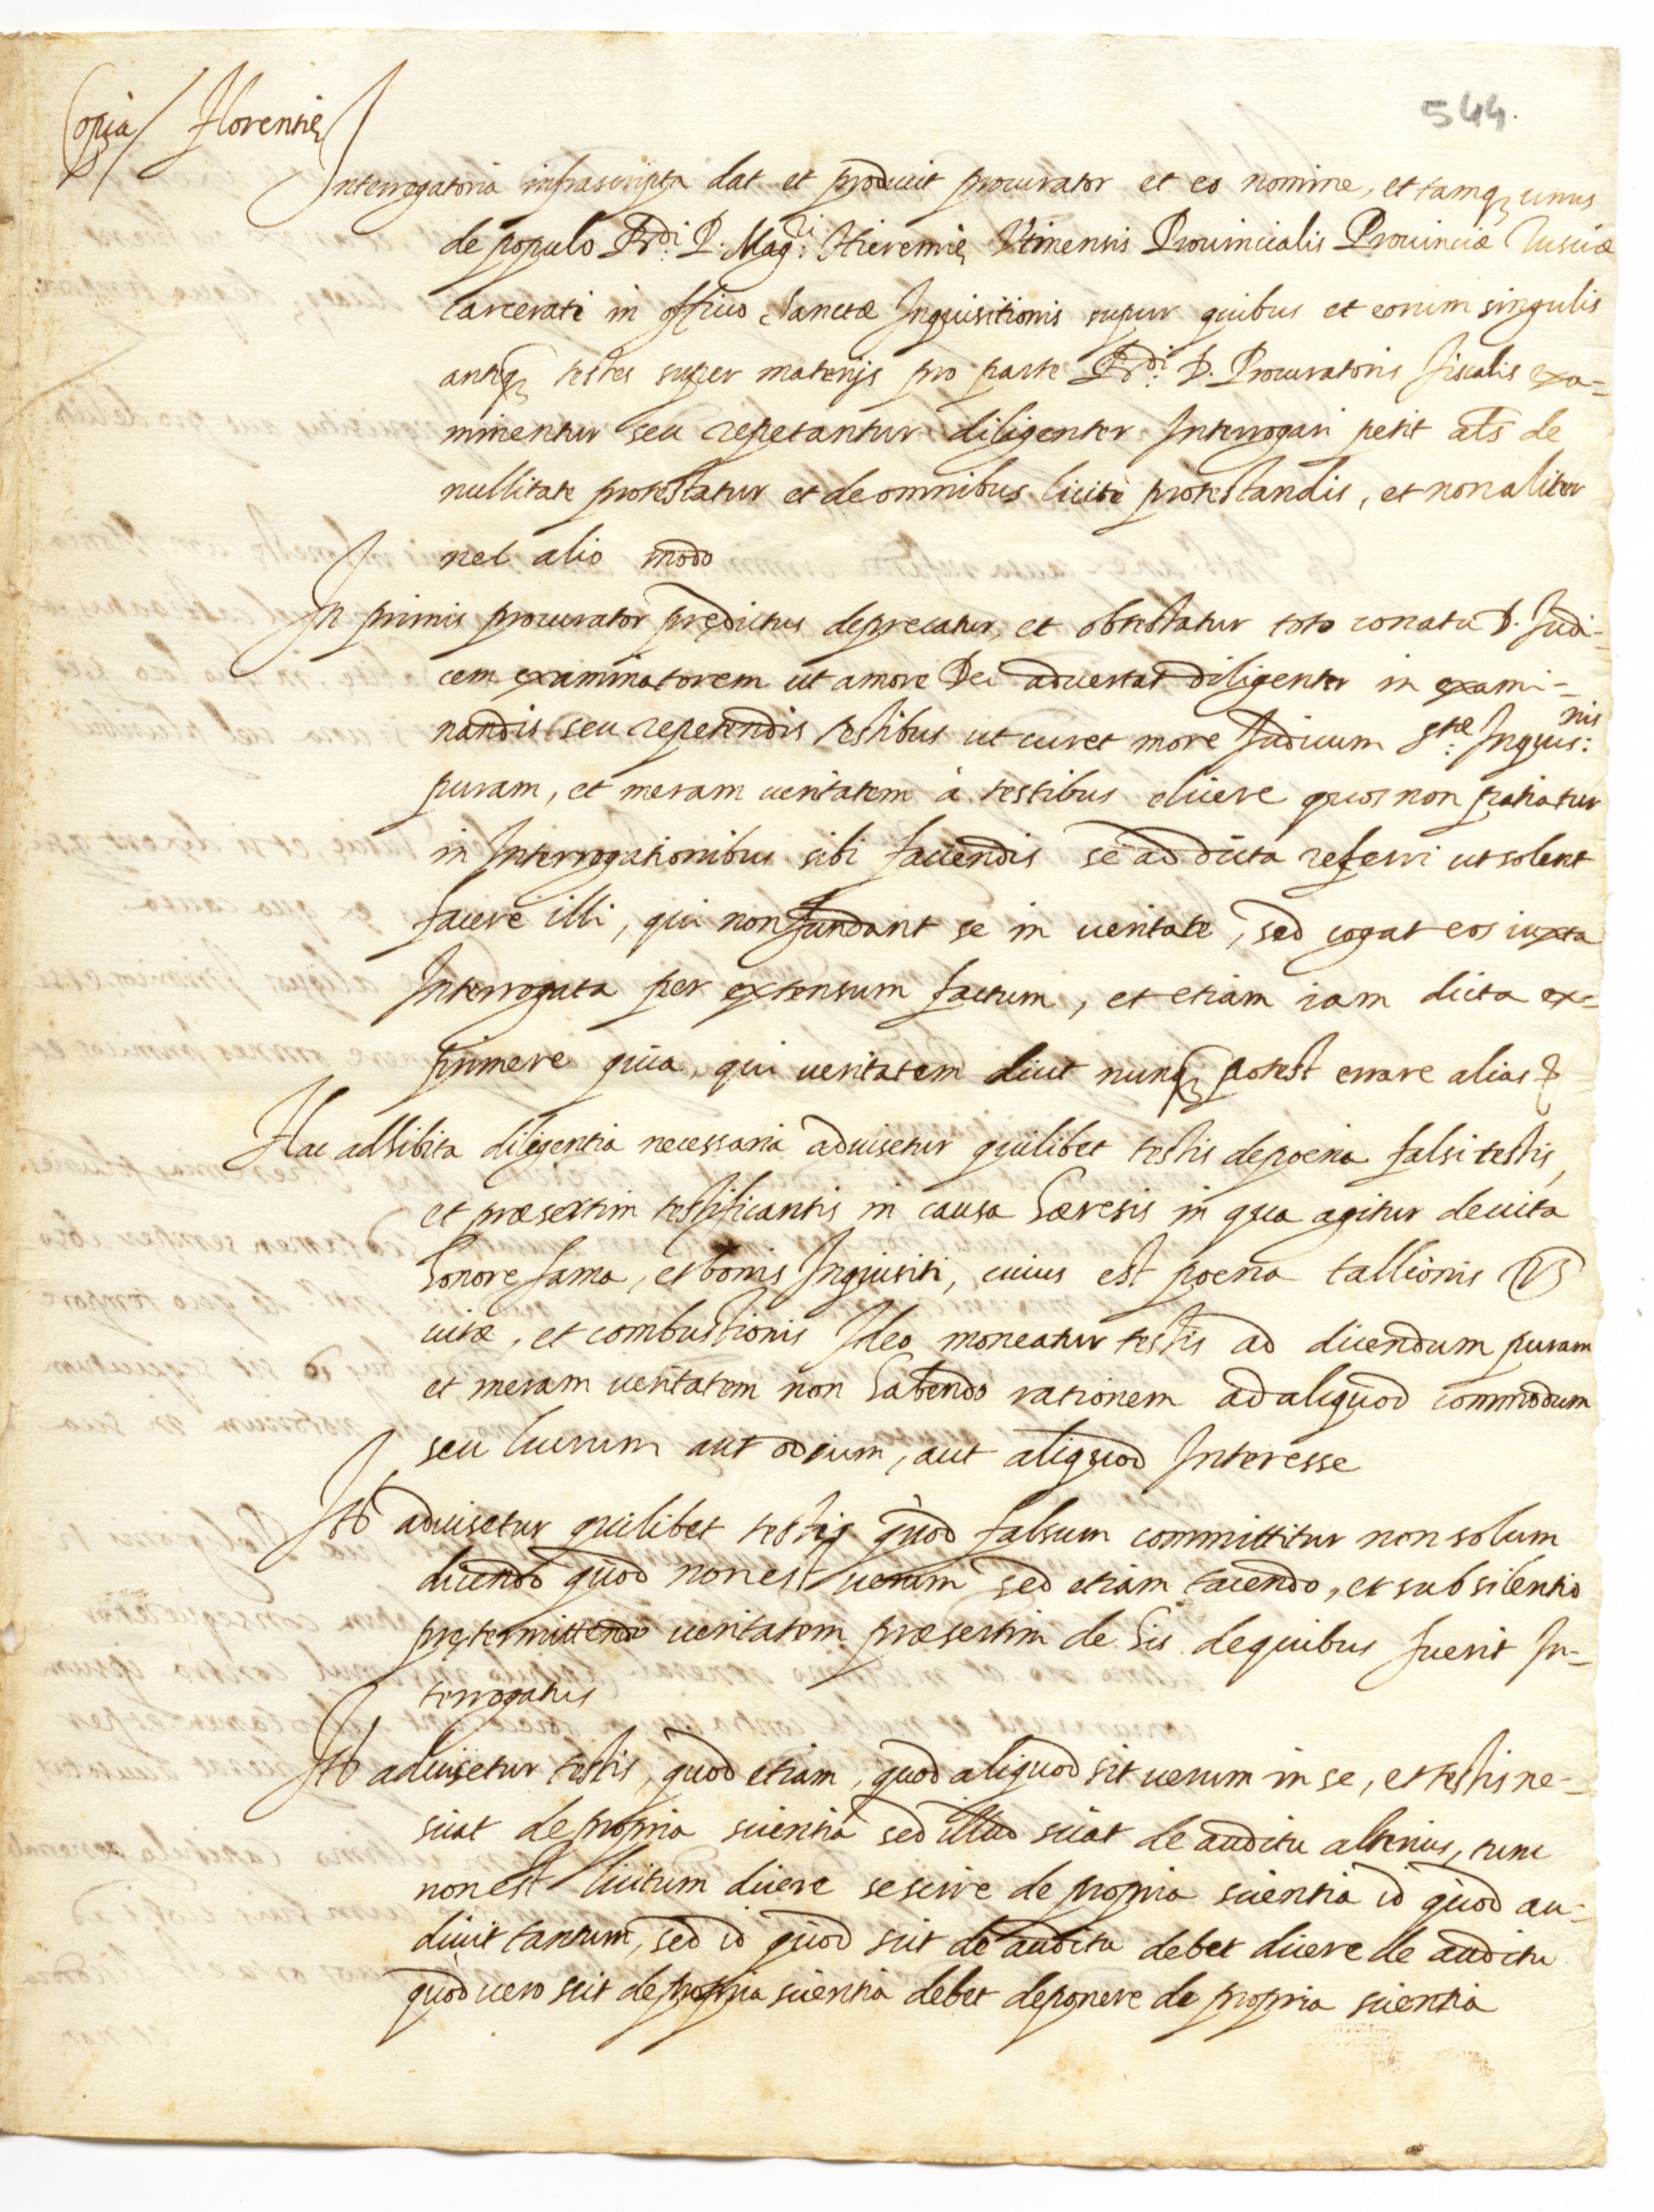 Copia / Florentię /
544.
Interrogatoria infrascripta dat et producit procurator et eo nomine, et tamqȝ unus
de populo Rdi: P. Magri: Hieremię Utinensis Prouincialis Prouinciæ Tusciæ
carcerati in officio Sanctæ Inquisitionis super quibus et eorum singulis
anteqȝ testes super materijs pro parte Rdi: D. Procuratoris fiscalis exa-
minentur seu repetantur diligenter Interrogari petit als de
nullitate protestatur et de omnibus licitè protestandis, et non aliter
nel alio modo
In primis procurator prędictus deprecatur, et obtestatur toto conatu D. Judi-
cem examinatorem ut amore Dei aduertat diligenter in exami-
nandis seu repetendis testibus ut curet more Judicum Stæ: Inquisnis:
puram, et meram ueritatem à testibus elicere quos non patiatur
in Interrogationibus sibi faciendis se ad dicta referri ut solent
facere illi, qui non fundant se in ueritate, sed cogat eos iuxta
Interrogata per extensum factum, et etiam iam dicta ex-
primere quia, qui ueritatem dicit nunqȝ potest errare alias &
Hac adhibita diligentia necessaria aduisetur quilibet testis de poena falsi testis,
et præsertim testificantis in causa hæresis in qua agitur de uita
honore fama, et bonis Inquisiti, cuius est poena tallionis
uitæ, et combustionis Ideo moneatur testis ad dicendum puram
et meram ueritatem non habendo rationem ad aliquod commodum
seu lucrum aut odium, aut aliquod Interesse
Itē aduisetur quilibet testis quòd falsum committitur non solum
dicendo quod non est uerum sed etiam tacendo, et sub silentio
prętermittendo ueritatem præsertim de his de quibus fuerit In-
terrogatus
Itē aduisetur testis, quòd etiam, quod aliquod sit uerum in se, et testis ne-
sciat de propria scientia sed illud sciat de auditu alterius, tunc
non est licitum dicere se scire de propria scientia id quod au-
diuit tantum, sed id quod scit de auditu debet dicere de auditu
quòd uero scit de propria scientia debet deponere de propria scientia